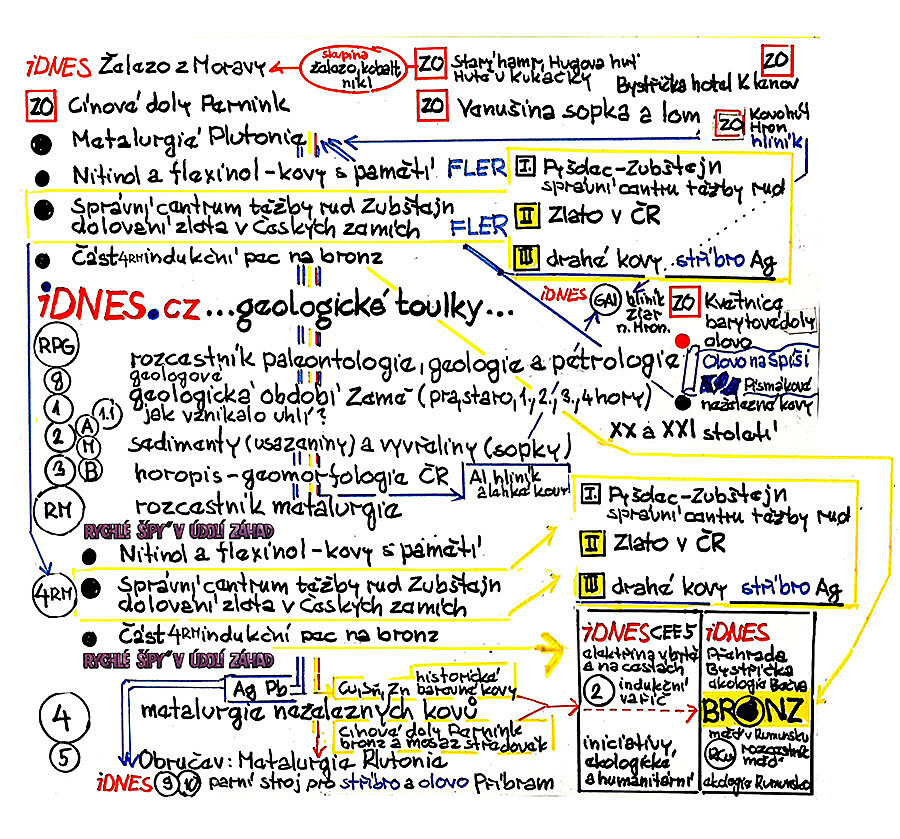 iDNES Železo z Moravy
skupina
železo, kobalt
nikl
ZO
Starý hamr, Hugova huť
Huť u Kukačky
ZO
Bystřička hotel Klenov
ZO Cínové doly Pernink
ZO Venušina sopka a lom
ZO Kovohutě
Hron.
hliník
Metalurgie Plutonia
Nitinol a flexinol - kovy s pamětí
FLER
I. Pyšelec-Zubštejn
správní centru těžby rud
Správní centrum těžby rud Zubštejn
dolování zlata v Českých zemích
FLER
II Zlato v ČR
Část 4RM indukční pec na bronz
III drahé kovy stříbro Ag
iDNES.cz ...geologické toulky...
iDNES GAl hliník
Žiar
n. Hron.
ZO Květnice
barytové doly
olovo
Olovo na Spiši
Písmákové
neželezné kovy
XX a XXI století
RPG
rozcestník paleontologie, geologie a petrologie
8
geologové
geologická období Země (pra, staro, 1., 2., 3., 4 hory)
1 1.i
jak vzniklo uhlí?
2 A
M
sedimenty (usazeniny) a vyvřeliny (sopky)
3 B
horopis - geomorfologie ČR
Al hliník
a lehké kovy
RM
rozcestník metalurgie
RYCHLÉ ŠÍPY V ÚDOLÍ ZÁHAD
I. Pyšelec-Zubštejn
správní centru těžby rud
Nitinol a flexinol - kovy s pamětí
II Zlato v ČR
4RM
Správní centrum těžby rud Zubštejn
dolování zlata v Českých zemích
III drahé kovy stříbro Ag
Část 4RM indukční pec na bronz
RYCHLÉ ŠÍPY V ÚDOLÍ ZÁHAD
iDNES CEE5
elektřina v bytě
a na cestách
2 indukční
vařič
iniciativy,
ekologické
a humanitární
iDNES
Přehrada
Bystřička
ekologie Bečva
BRONZ
měď v Rumunsku
RCu rozcestník
měď
ekologie Rumunsko
Ag Pb
Cu, Sn, Zn
historické
barevné kovy
4
metalurgie neželezných kovů
cínové doly Pernink
bronz a mosaz středověk
5
Obručev: Metalurgie Plutonia
iDNES 9 10 parní stroj pro stříbro a olovo Příbram